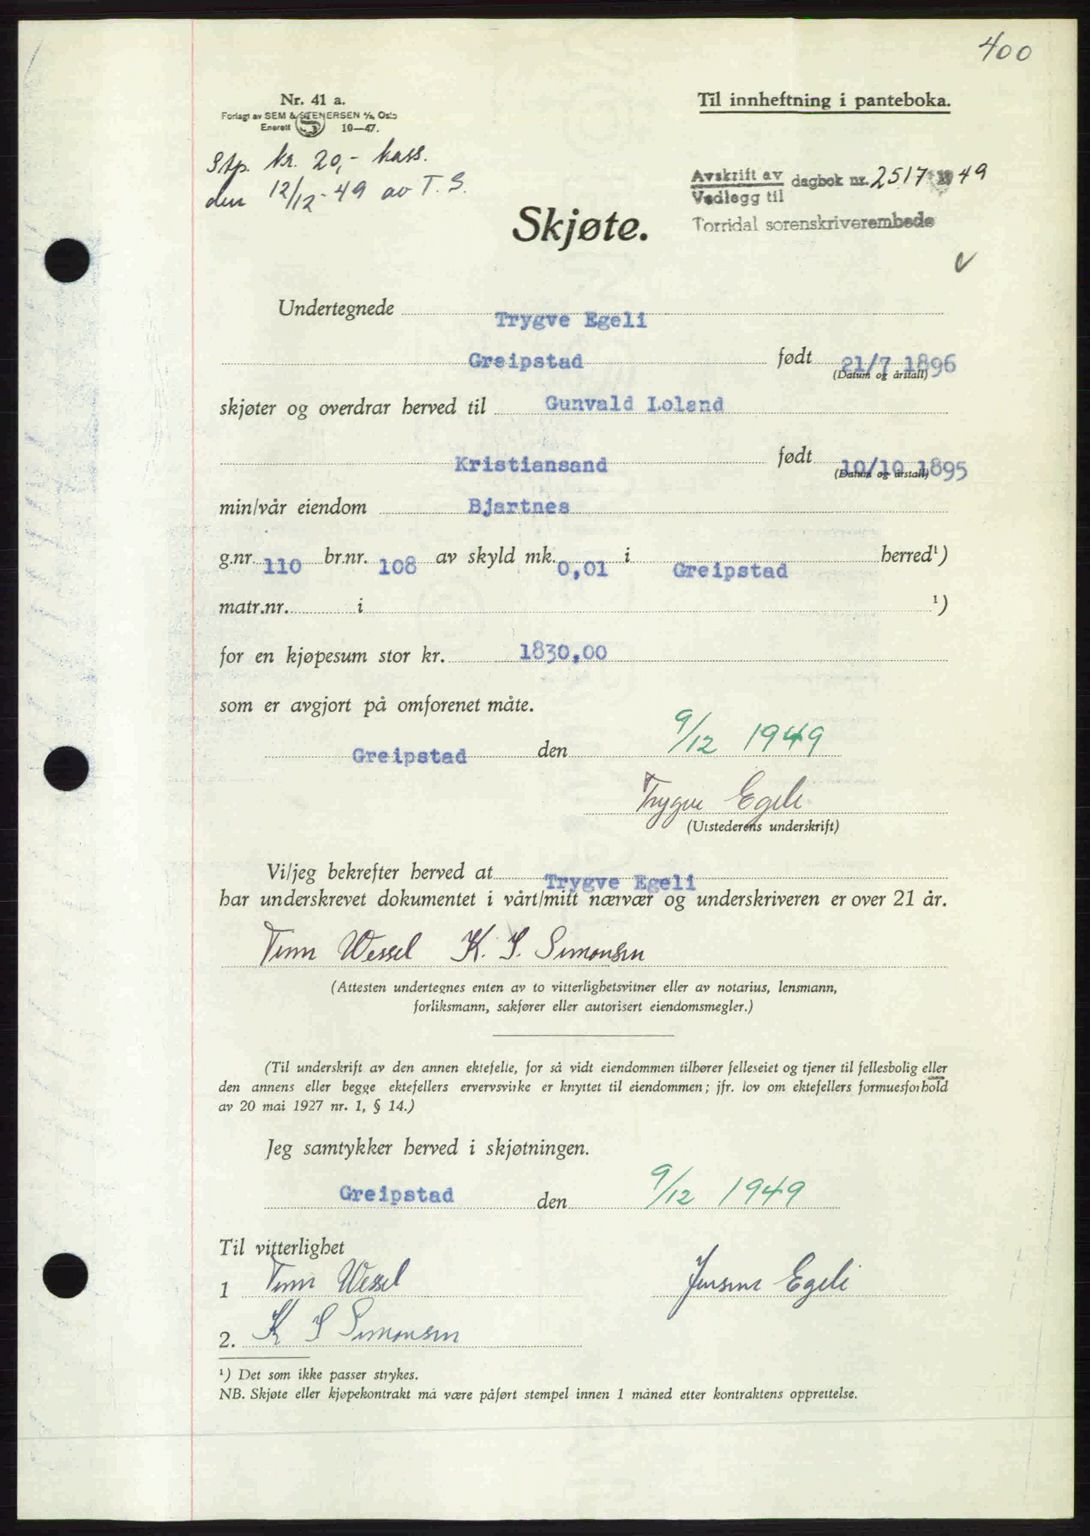 400
Nr. 41 a.
Forlagt av SEM & STENERSEN A/S, Oslo
Enerett 10—47.
Til innheftning i panteboka.
Stp. kr. 20,- kass.
den 12/12-49 av T. S.
Avskrift av dagbok nr. 2517 1949
Vedlegg til
Torridal sorenskriverembede
Skjøte.
Undertegnede Trygve Egeli
Greipstad født 21/7 1896
(Datum og årstall)
skjøter og overdrar herved til Gunvald Loland
Kristiansand født 10/10 1895
(Datum og årstall)
min/vår eiendom Bjartnes
g.nr. 110 br.nr. 108 av skyld mk. 0,01 i Greipstad herred¹)
matr.nr. i ¹)
for en kjøpesum stor kr. 1830,00
som er avgjort på omforenet måte.
Greipstad den 9/12 1949
Trygve Egeli
(Utstederens underskrift)
Vi/jeg bekrefter herved at Trygve Egeli
har underskrevet dokumentet i vårt/mitt nærvær og underskriveren er over 21 år.
Finn Wessel K. S. Simonsen
(Attesten undertegnes enten av to vitterlighetsvitner eller av notarius, lensmann,
forliksmann, sakfører eller autorisert eiendomsmegler.)
(Til underskrift av den annen ektefelle, for så vidt eiendommen tilhører felleseiet og tjener til fellesbolig eller
den annens eller begge ektefellers ervervsvirke er knyttet til eiendommen; jfr. lov om ektefellers formuesforhold
av 20 mai 1927 nr. 1, § 14.)
Jeg samtykker herved i skjøtningen.
Greipstad den 9/12 1949
Til vitterlighet
1 Finn Wessel Egeli
2. K S Simonsen
¹) Det som ikke passer strykes.
NB. Skjøte eller kjøpekontrakt må være påført stempel innen 1 måned etter kontraktens opprettelse.